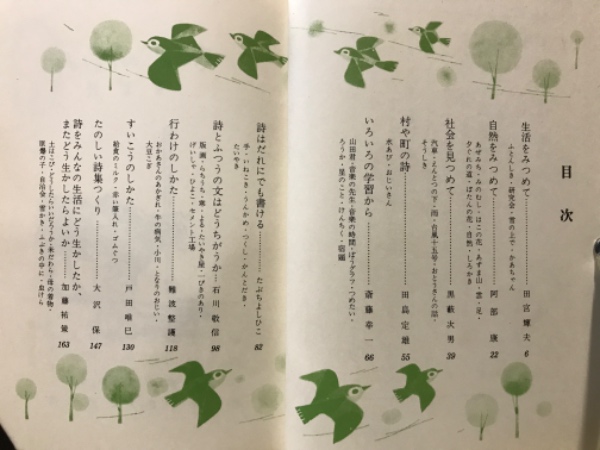 目次
生活をみつめて……………田宮輝夫 6
ふとんしき・研究会・雪の上で・かあちゃん
自然をみつめて……………阿部 康 22
あぜみち・みのむし・はこの花・あずま山・雲・足・
夕ぐれの道・ぼたんの花・自然・しろかき
社会を見つめて……………黒藪次男 39
汽車・えんとつの下・雨・台風十五号・おとうさんの話・
そうしき
村や町の詩……………田島定雄 55
水あび・おじいさん
いろいろの学習から……………斎藤幸一 66
山田君・音楽の先生・音楽の時間・ぼうグラフ・つめたい・
ろうか・里のこと・けんちく・朝顔
詩はだれにでも書ける……………たぶちよしひこ 82
手・いねこき・うんかめ・つくし・かんとだき・
たいやき
詩とふつうの文はどうちがうか…石川敬信 98
版画・らちうち・寒・よる・たいやき屋・一ぴきのあり・
げいしゃ・ひよこ・セメント工場
行わけのしかた……………難波整護 118
おかあさんのあかぎれ・牛の病気・小川・となりのおじい・
大豆こぎ
すいこうのしかた……………戸田唯巳 130
給食のミルク・赤い筆入れ・ゴムぐつ
たのしい詩集つくり……………大沢 保 147
詩をみんなの生活にどう生かしたか、
またどう生かしたらよいか……加藤祐量 163
土はこび・どうしたらいいだろうか・米だわら・母の着物・
原爆の子・自治会・雪かき・ふぶきの中に・負けら